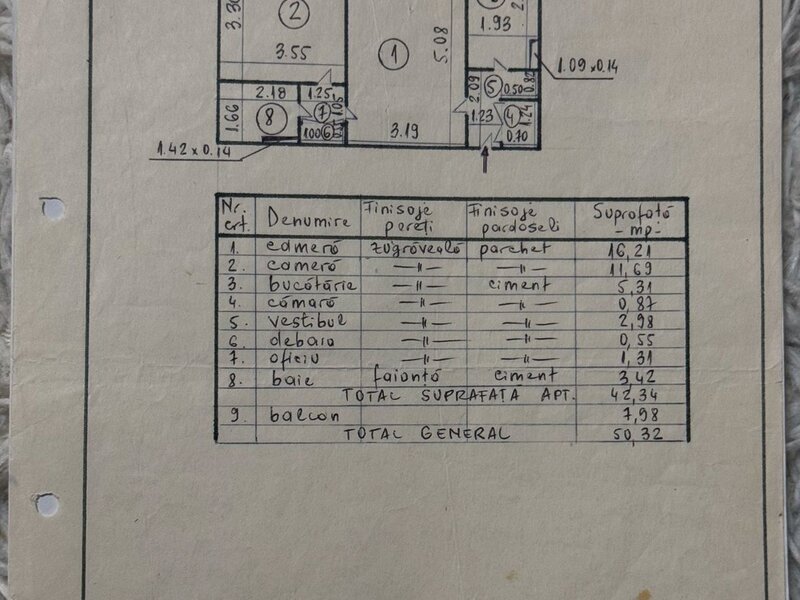 3.30 2 3.55
1 5.08 3.19
1.93
1.09 x 0.14
2.18 1.25 7 1.05
1.66 8 1.00 6
1.42 x 0.14
2.09 5 0.50 0.82
1.23 4 1.24 0.70
Nr. crt. Denumire Finisaje pereți Finisaje pardoseli Suprafață -mp-
1. cameră zugrăveală parchet 16,21
2. cameră —"— —"— 11,69
3. bucătărie —"— ciment 5,31
4. cămară —"— —"— 0,87
5. vestibul —"— —"— 2,98
6. debara —"— —"— 0,55
7. oficiu —"— —"— 1,31
8. baie faianță ciment 3,42
TOTAL SUPRAFAȚA APT. 42,34
9. balcon 7,98
TOTAL GENERAL 50,32